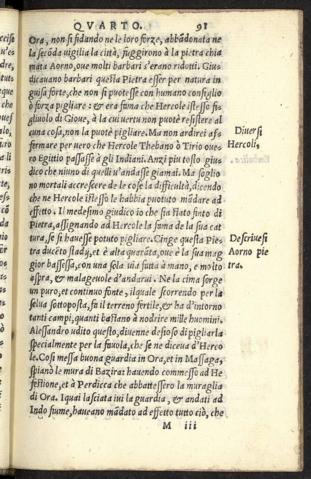 QVARTO. 91
Ora, non si fidando ne le loro forze, abbãdonata ne
la secõda uigilia la città, fuggirono à la pietra chia
mata Aorno, oue molti barbari s'erano ridotti. Gius
dicauano barbari questa Pietra esser per natura in
guisa forte, che non si puotesse con humano consiglio
ò forza pigliare: & era fama che Hercole istesso fi=
gliuolo di Gioue, à la cui uertu non puotè resistere al
cuna cosa, non la puotè pigliare. Ma non ardirei af=
fermare per uero che Hercole Thebano ò Tirio oue=
ro Egittio passasse à gli Indiani. Anzi piu tosto giu=
dico che niuno di quelli u'andasse giamai. Ma soglio
no mortali accrescere de le cose la difficultà, dicendo
che ne Hercole istesso le habbia puotuto mãdare ad
effetto. Il medesimo giudico io che sia stato finto di
Pietra, assignando ad Hercole la fama de la sua cat
tura, se si hauesse potuto pigliare. Cinge questa Pie=
tra ducẽto stadij, et è alta quarãta, oue è la sua mag
gior bassezza, con una sola uia fatta à mano, e molto
aspra, & malageuole d'andarui. Ne la cima sorge
un puro, et continuo fonte, il quale scorrendo per la
selua sottoposta, fa il terreno fertile, & ha d'intorno
tanti campi, quanti bastano à nodrire mille huomini.
Alessandro udito questo, diuenne desioso di pigliarla
specialmente per la fauola, che se ne diceua d'Herco
le. Così messa buona guardia in Ora, et in Massaga,
spianò le mura di Bazira: hauendo commesso ad He
festione, et à Perdicca che abbattessero la muraglia
di Ora. I quai lasciata iui la guardia, & andati ad
Indo fiume, haueano mãdato ad effetto tutto ciò, che
M iii
Diuersi
Hercoli,
Descriuesi
Aorno pie
tra.